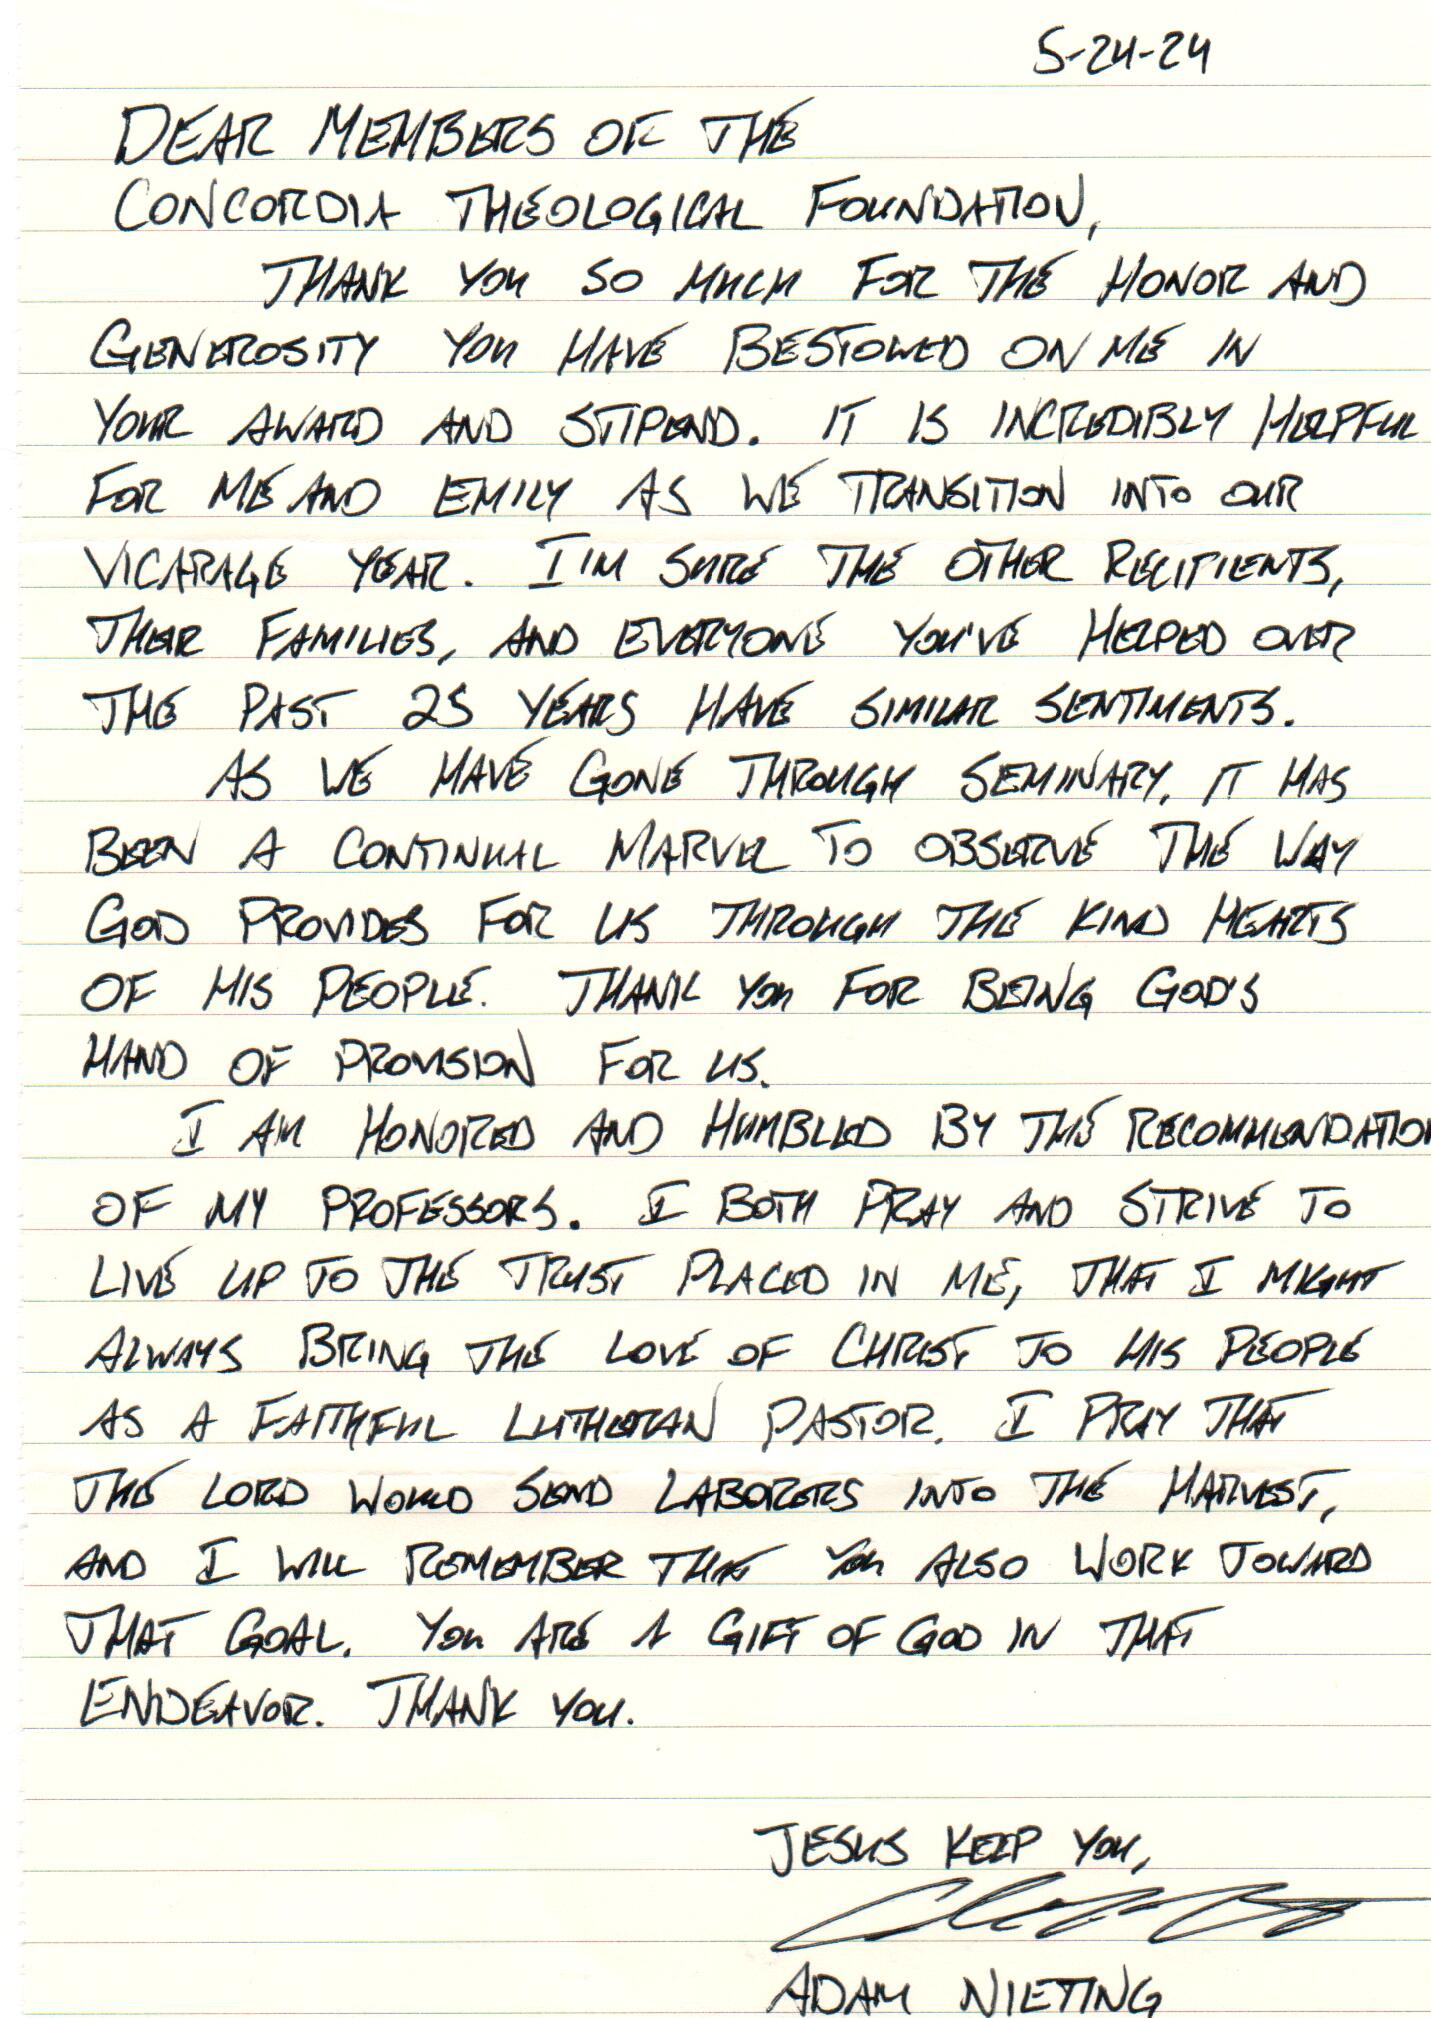 5-24-24
DEAR MEMBERS OF THE
CONCORDIA THEOLOGICAL FOUNDATION,
THANK YOU SO MUCH FOR THE HONOR AND
GENEROSITY YOU HAVE BESTOWED ON ME IN
YOUR AWARD AND STIPEND. IT IS INCREDIBLY HELPFUL
FOR ME AND EMILY AS WE TRANSITION INTO OUR
VICARAGE YEAR. I'M SURE THE OTHER RECIPIENTS,
THEIR FAMILIES, AND EVERYONE YOU'VE HELPED OVER
THE PAST 25 YEARS HAVE SIMILAR SENTIMENTS.
AS WE HAVE GONE THROUGH SEMINARY, IT HAS
BEEN A CONTINUAL MARVEL TO OBSERVE THE WAY
GOD PROVIDES FOR US THROUGH THE KIND HEARTS
OF HIS PEOPLE. THANK YOU FOR BEING GOD'S
HAND OF PROVISION FOR US.
I AM HONORED AND HUMBLED BY THE RECOMMENDATION
OF MY PROFESSORS. I BOTH PRAY AND STRIVE TO
LIVE UP TO THE TRUST PLACED IN ME, THAT I MIGHT
ALWAYS BRING THE LOVE OF CHRIST TO HIS PEOPLE
AS A FAITHFUL LUTHERAN PASTOR. I PRAY THAT
THE LORD WOULD SEND LABORERS INTO THE HARVEST,
AND I WILL REMEMBER THAT YOU ALSO WORK TOWARD
THAT GOAL. YOU ARE A GIFT OF GOD IN THAT
ENDEAVOR. THANK YOU.
JESUS KEEP YOU,
ADAM NIETING